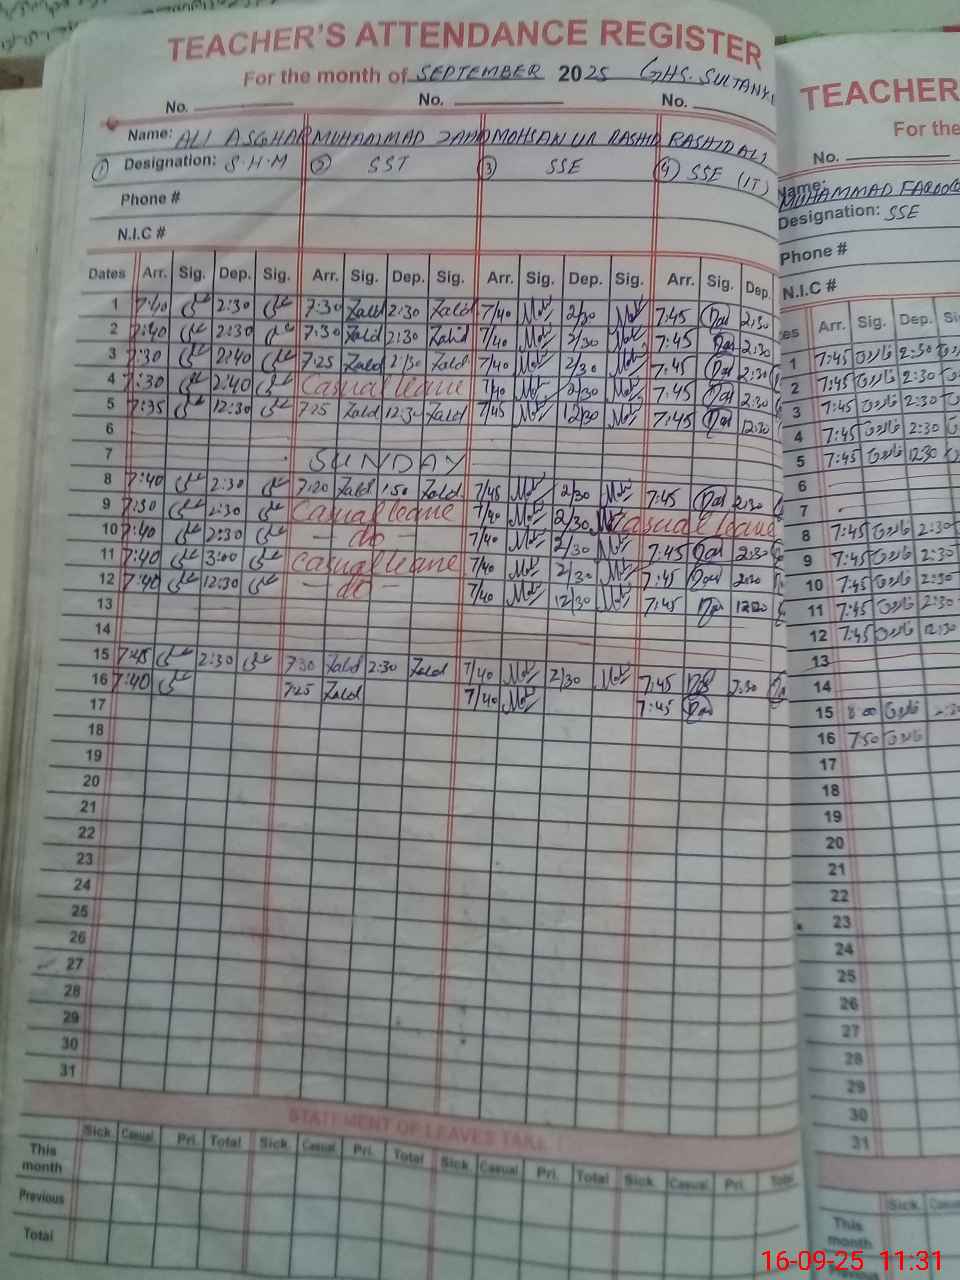 TEACHER'S ATTENDANCE REGISTER
For the month of SEPTEMBER 2025 GHS. SULTANK
No. No. No.
Name: ALI ASGHAR MUHAMMAD ZAHID MOHSAN UR RASHID RASHID ALI
① Designation: S.H.M ② SST ③ SSE ④ SSE (IT)
Phone #
N.I.C #
Dates Arr. Sig. Dep. Sig. Arr. Sig. Dep. Sig. Arr. Sig. Dep. Sig. Arr. Sig. Dep.
1 7:40 2:30 7:30 Zahid 2:30 Zahid 7/40 2/30 7:45 2:30
2 7:40 2:30 7:30 Zahid 2:30 Zahid 7/40 2/30 7:45 2:30
3 7:30 2:40 7:25 Zahid 2:30 Zahid 7/40 2/30 7:45 2:30
4 7:30 2:40 Casual leave 7/40 2/30 7:45 2:30
5 7:35 12:30 7:25 Zahid 12:30 Zahid 7/45 12/30 7:45 12:30
6
7 SUNDAY
8 7:40 2:30 7:20 Zahid 1:50 Zahid 7/45 2/30 7:45 2:30
9 7:30 2:30 Casual leave 7/40 2/30 Casual leave
10 7:40 2:30 - do - 7/40 2/30 7:45 2:30
11 7:40 3:00 Casual leave 7/40 2/30 7:45 2:30
12 7:40 12:30 - do - 7/40 12/30 7:45 12:30
13
14
15 7:45 2:30 7:30 Zahid 2:30 Zahid 7/40 2/30 7:45 2:30
16 7:40 7:25 Zahid 7/40 7:45
17
18
19
20
21
22
23
24
25
26
27
28
29
30
31
STATEMENT OF LEAVES TAKE
Sick. Casual. Pri. Total Sick. Casual. Pri. Total Sick. Casual. Pri. Total Sick. Casual. Pri. Total
This month
Previous
Total
TEACHER
For the
No.
Name: MUHAMMAD FAROOQ
Designation: SSE
Phone #
N.I.C #
es Arr. Sig. Dep. Si
1 7:45 فاروق 2:30
2 7:45 فاروق 2:30
3 7:45 فاروق 2:30
4 7:45 فاروق 2:30
5 7:45 فاروق 12:30
6
7
8 7:45 فاروق 2:30
9 7:45 فاروق 2:30
10 7:45 فاروق 2:30
11 7:45 فاروق 2:30
12 7:45 فاروق 12:30
13
14
15 8:00 فاروق 2:30
16 7:50 فاروق
17
18
19
20
21
22
23
24
25
26
27
28
29
30
31
Sick. Casu
This month
16-09-25 11:31